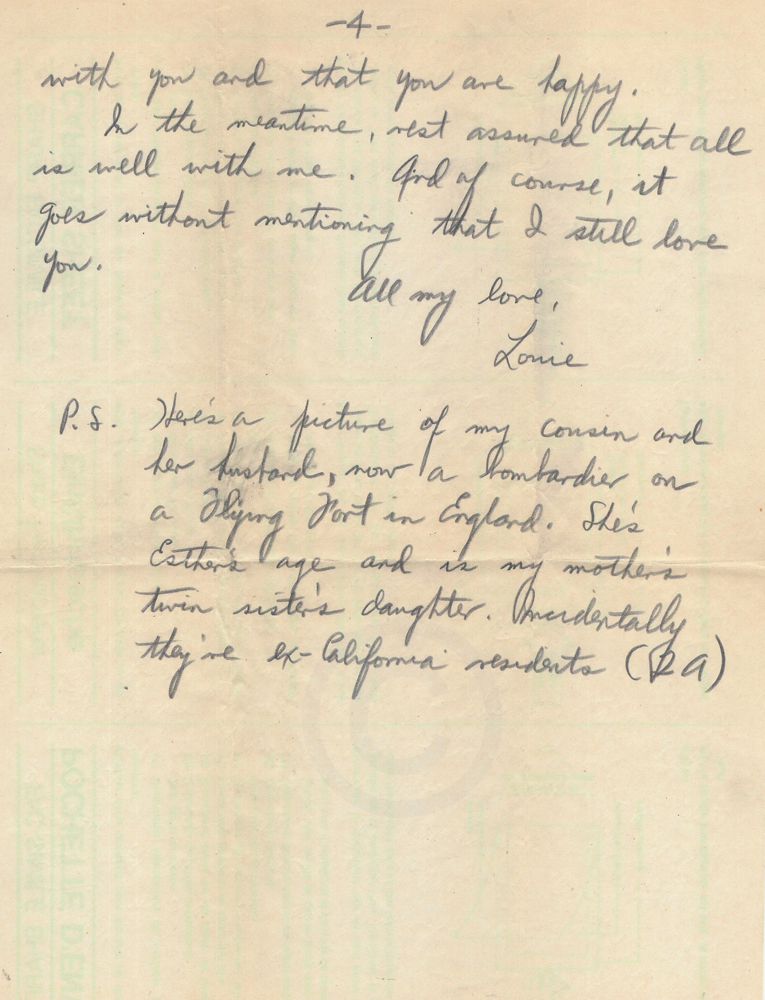 -4-
with you and that you are happy.
In the meantime, rest assured that all
is well with me. And of course, it
goes without mentioning that I still love
you.
All my love,
Louie
P.S. Here's a picture of my cousin and
her husband, now a bombardier on
a Flying Fort in England. She's
Esther's age and is my mother's
twin sister's daughter. Incidentally
they're ex-California residents (LA)
POCHETTE D'EN